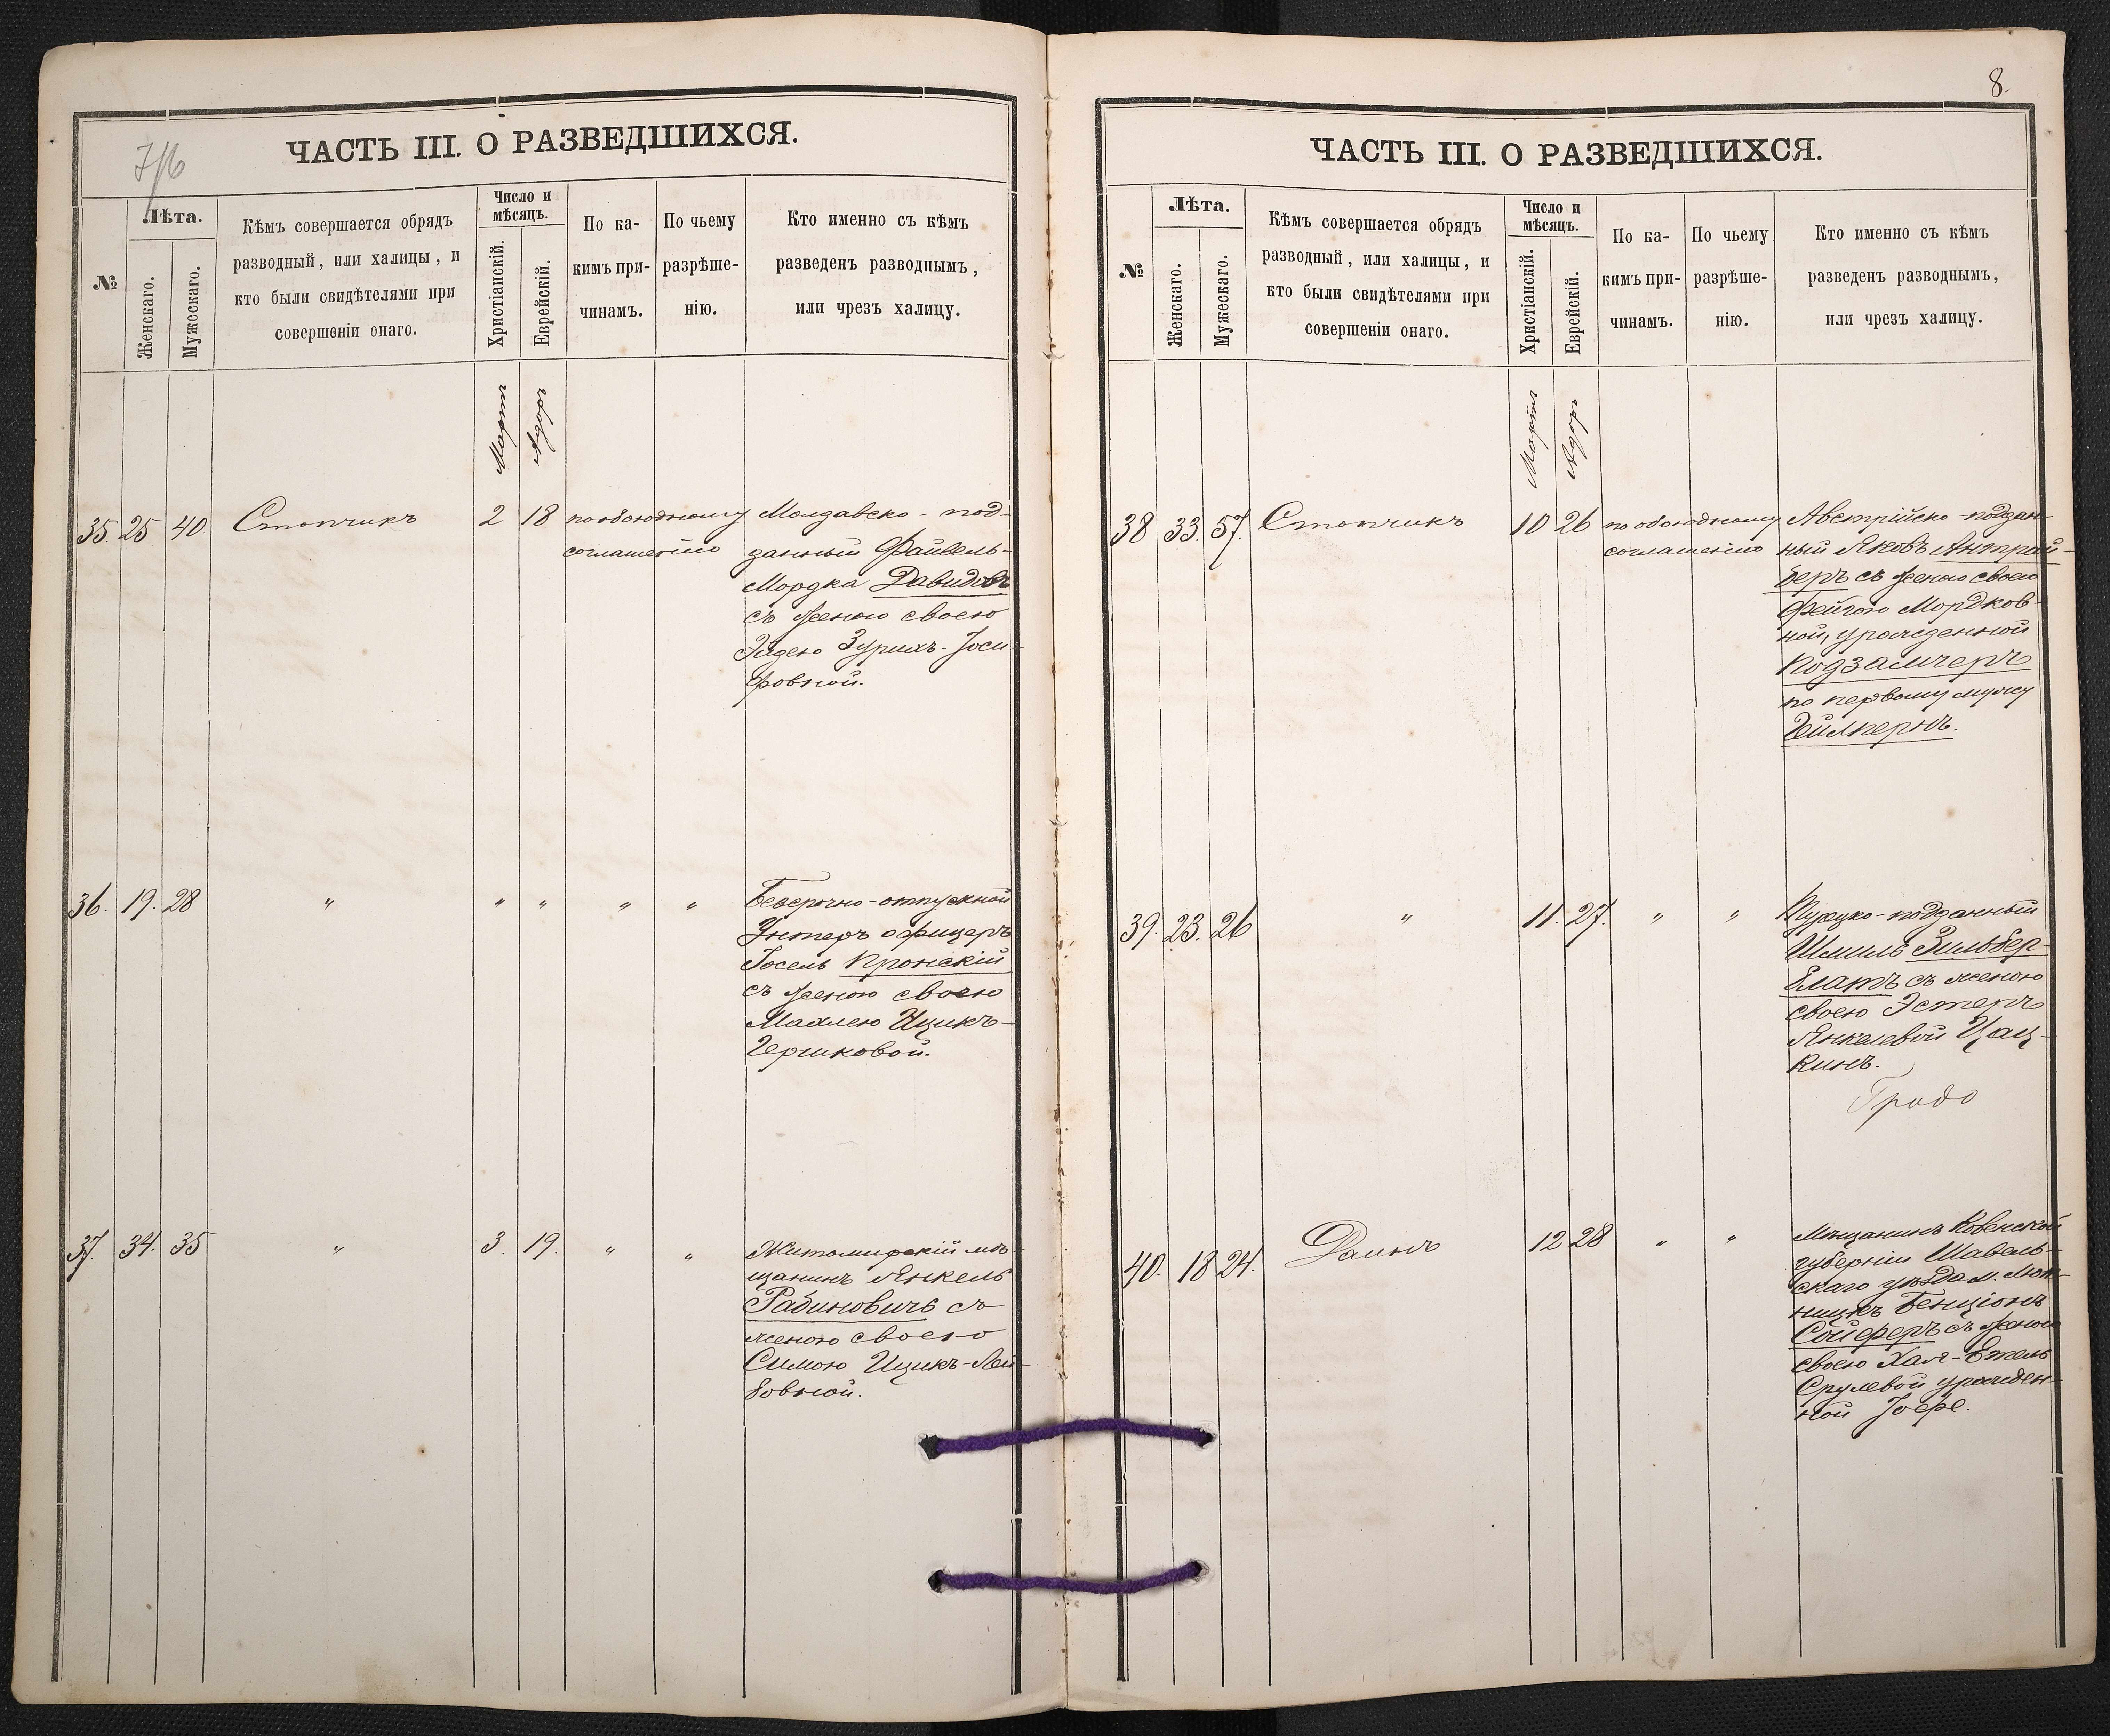 7/6
ЧАСТЬ III. О РАЗВЕДШИХСЯ.
№
Лѣта.
Женскаго.
Мужескаго.
Кѣмъ совершается обрядъ
разводный, или халицы, и
кто были свидѣтелями при
совершеніи онаго.
Число и
мѣсяцъ.
Христіанскій.
Еврейскій.
По ка-
кимъ при-
чинамъ.
По чьему
разрѣше-
нію.
Кто именно съ кѣмъ
разведенъ разводнымъ,
или чрезъ халицу.
Мартъ
Адоръ
35. 25 40. Стопчикъ 2 18 по обоюдному Молдавско-под-
соглашенію данный Файвель-
Мордка Давидовъ
съ женою своею
Эйдею Зурихъ-Іоси-
фовной.
36. 19. 28 " " " " " Безсрочно-отпускной
Унтеръ офицеръ
Іосель Пронскій
съ женою своею
Махлею Ицикъ-
Гершковой.
37. 34. 35 " 3. 19. " " Житомирскій мѣ-
щанинъ Янкель
Рабиновичъ съ
женою своею
Симою Ицикъ-Лей-
бовной.
8.
ЧАСТЬ III. О РАЗВЕДШИХСЯ.
№
Лѣта.
Женскаго.
Мужескаго.
Кѣмъ совершается обрядъ
разводный, или халицы, и
кто были свидѣтелями при
совершеніи онаго.
Число и
мѣсяцъ.
Христіанскій.
Еврейскій.
По ка-
кимъ при-
чинамъ.
По чьему
разрѣше-
нію.
Кто именно съ кѣмъ
разведенъ разводнымъ,
или чрезъ халицу.
Мартъ
Адоръ
38 33. 57. Стопчикъ 10 26 по обоюдному Австрійско-поддан-
соглашенію ный Яковъ Антрай-
беръ съ женою своею
Фейгою Мордков-
ной, урожденной
Кодзамчеръ
по первому мужу
Гейлпернъ.
39. 23. 26 " 11. 27. " " Турецко-подданный
Шмиль Зильбер-
блатъ съ женою
своею Эстеръ
Янкелевой Цац-
кинъ.
40. 18 24. Даинъ 12 28 " " Мѣщанинъ Ковенской
губерніи Шавель-
скаго уѣзда м.
Бенціонъ
Сойферъ съ женою
своею Хая-Этель
Срулевой урожден-
ной Іофе.